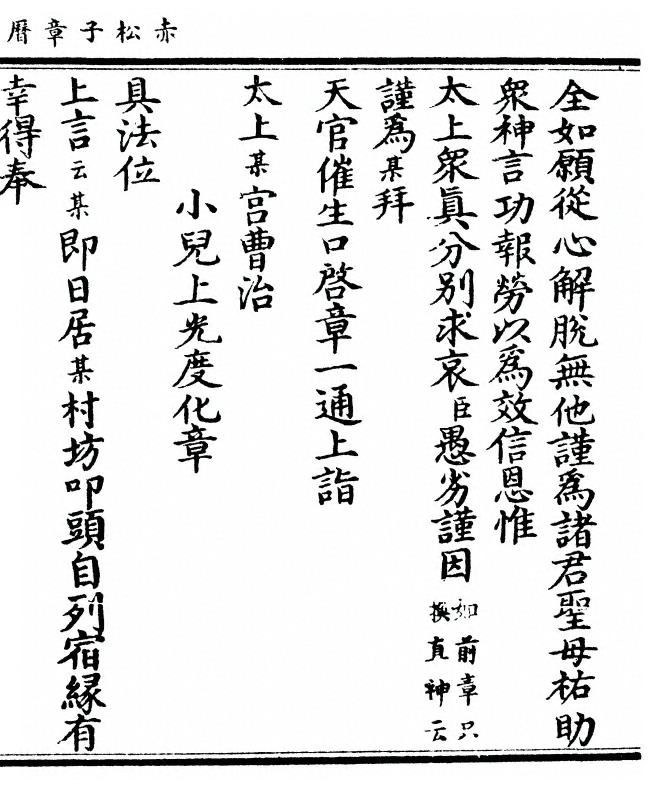 赤松子章曆
全如願從心解脫無他謹爲諸君聖母祐助
衆神言功報勞以爲效信恩惟
太上衆眞分别求哀臣愚劣謹因如前章只換直神云
謹爲某拜
天官催生口啓章一通上詣
太上某宫曹治
小兒上光度化章
具法位
上言云某即日居某村坊叩頭自列宿緣有
幸得奉